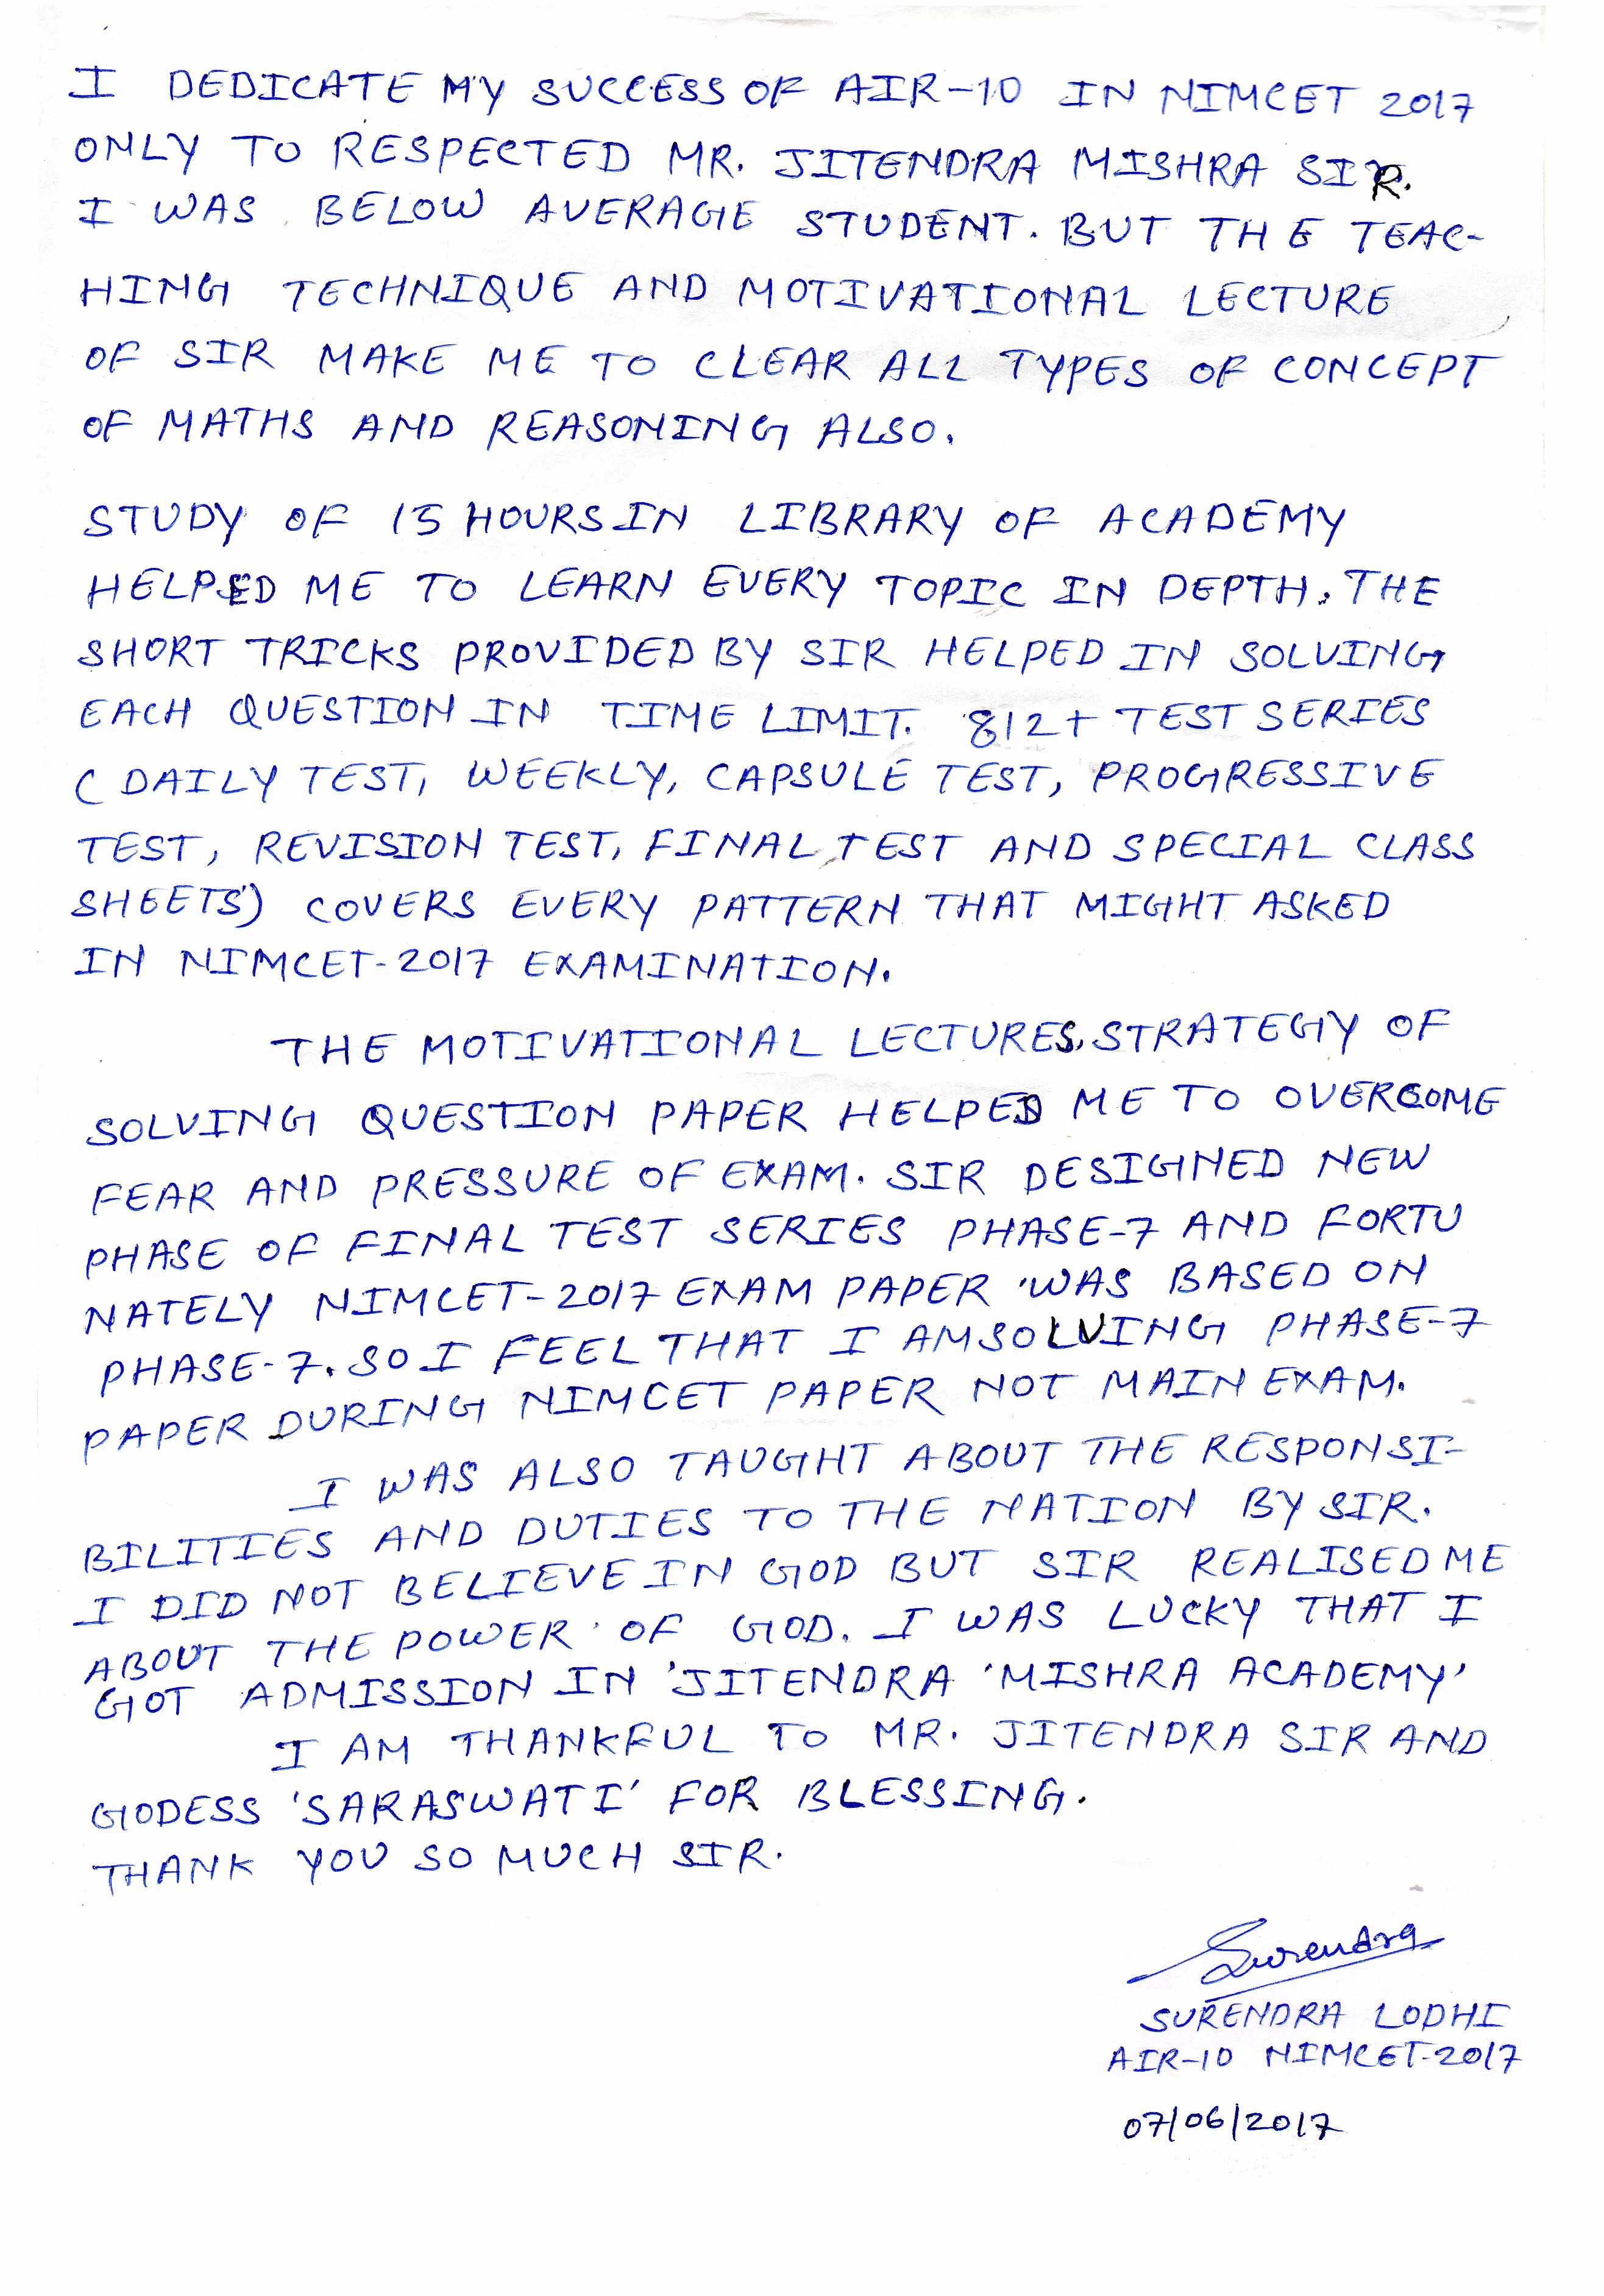 I DEDICATE MY SUCCESS OF AIR-10 IN NIMCET 2017
ONLY TO RESPECTED MR. JITENDRA MISHRA SIR.
I WAS BELOW AVERAGE STUDENT. BUT THE TEAC-
HING TECHNIQUE AND MOTIVATIONAL LECTURE
OF SIR MAKE ME TO CLEAR ALL TYPES OF CONCEPT
OF MATHS AND REASONING ALSO.
STUDY OF 15 HOURS IN LIBRARY OF ACADEMY
HELPED ME TO LEARN EVERY TOPIC IN DEPTH. THE
SHORT TRICKS PROVIDED BY SIR HELPED IN SOLVING
EACH QUESTION IN TIME LIMIT. 812+ TEST SERIES
( DAILY TEST, WEEKLY, CAPSULE TEST, PROGRESSIVE
TEST, REVISION TEST, FINAL TEST AND SPECIAL CLASS
SHEETS) COVERS EVERY PATTERN THAT MIGHT ASKED
IN NIMCET-2017 EXAMINATION.
THE MOTIVATIONAL LECTURES, STRATEGY OF
SOLVING QUESTION PAPER HELPED ME TO OVERCOME
FEAR AND PRESSURE OF EXAM. SIR DESIGNED NEW
PHASE OF FINAL TEST SERIES PHASE-7 AND FORTU
NATELY NIMCET-2017 EXAM PAPER WAS BASED ON
PHASE-7. SO I FEEL THAT I AM SOLVING PHASE-7
PAPER DURING NIMCET PAPER NOT MAIN EXAM.
I WAS ALSO TAUGHT ABOUT THE RESPONSI-
BILITIES AND DUTIES TO THE NATION BY SIR.
I DID NOT BELIEVE IN GOD BUT SIR REALISED ME
ABOUT THE POWER OF GOD. I WAS LUCKY THAT I
GOT ADMISSION IN 'JITENDRA 'MISHRA ACADEMY'
I AM THANKFUL TO MR. JITENDRA SIR AND
GODESS 'SARASWATI' FOR BLESSING.
THANK YOU SO MUCH SIR.
Surendra
SURENDRA LODHI
AIR-10 NIMCET-2017
07/06/2017